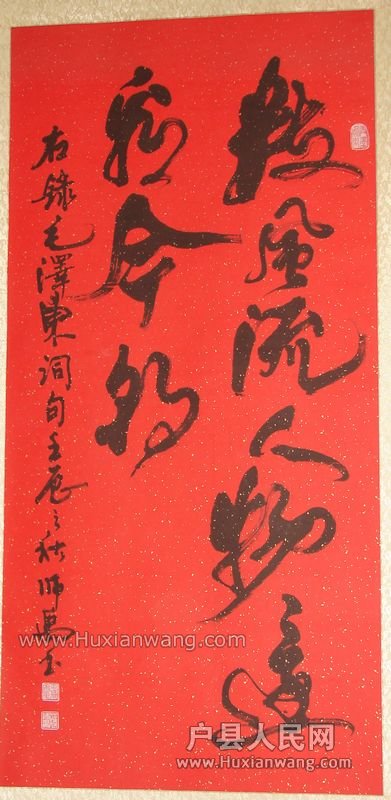 數風流人物還
看今朝
右錄毛澤東詞句壬辰之秋師禹書
www.Huxianwang.com
户县人民网
www.Huxianwang.com